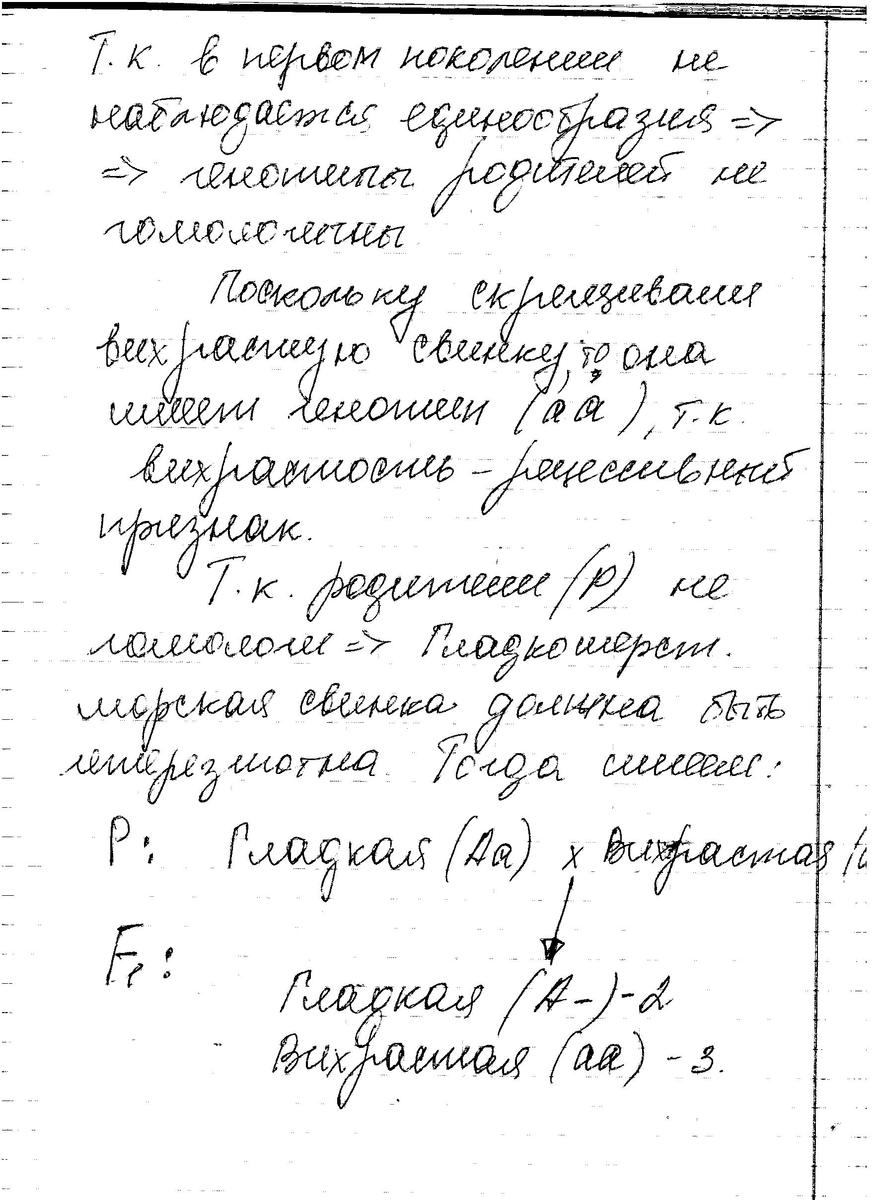 Т.к. в первом поколении не
наблюдается единообразия =>
=> генотипы родителей не
гомологичны
Поскольку скрещивали
вихрастую свинку, то она
имеет генотип (аа), т.к.
вихрастость – рецессивный
признак.
Т.к. родители (P) не
гомологи => Гладкошерст.
морская свинка должна быть
гетерезиготна. Тогда имеем:
P: Гладкая (Аа) x Вихрастая (
F₁:
Гладкая (А-) - 2
Вихрастая (аа) - 3.